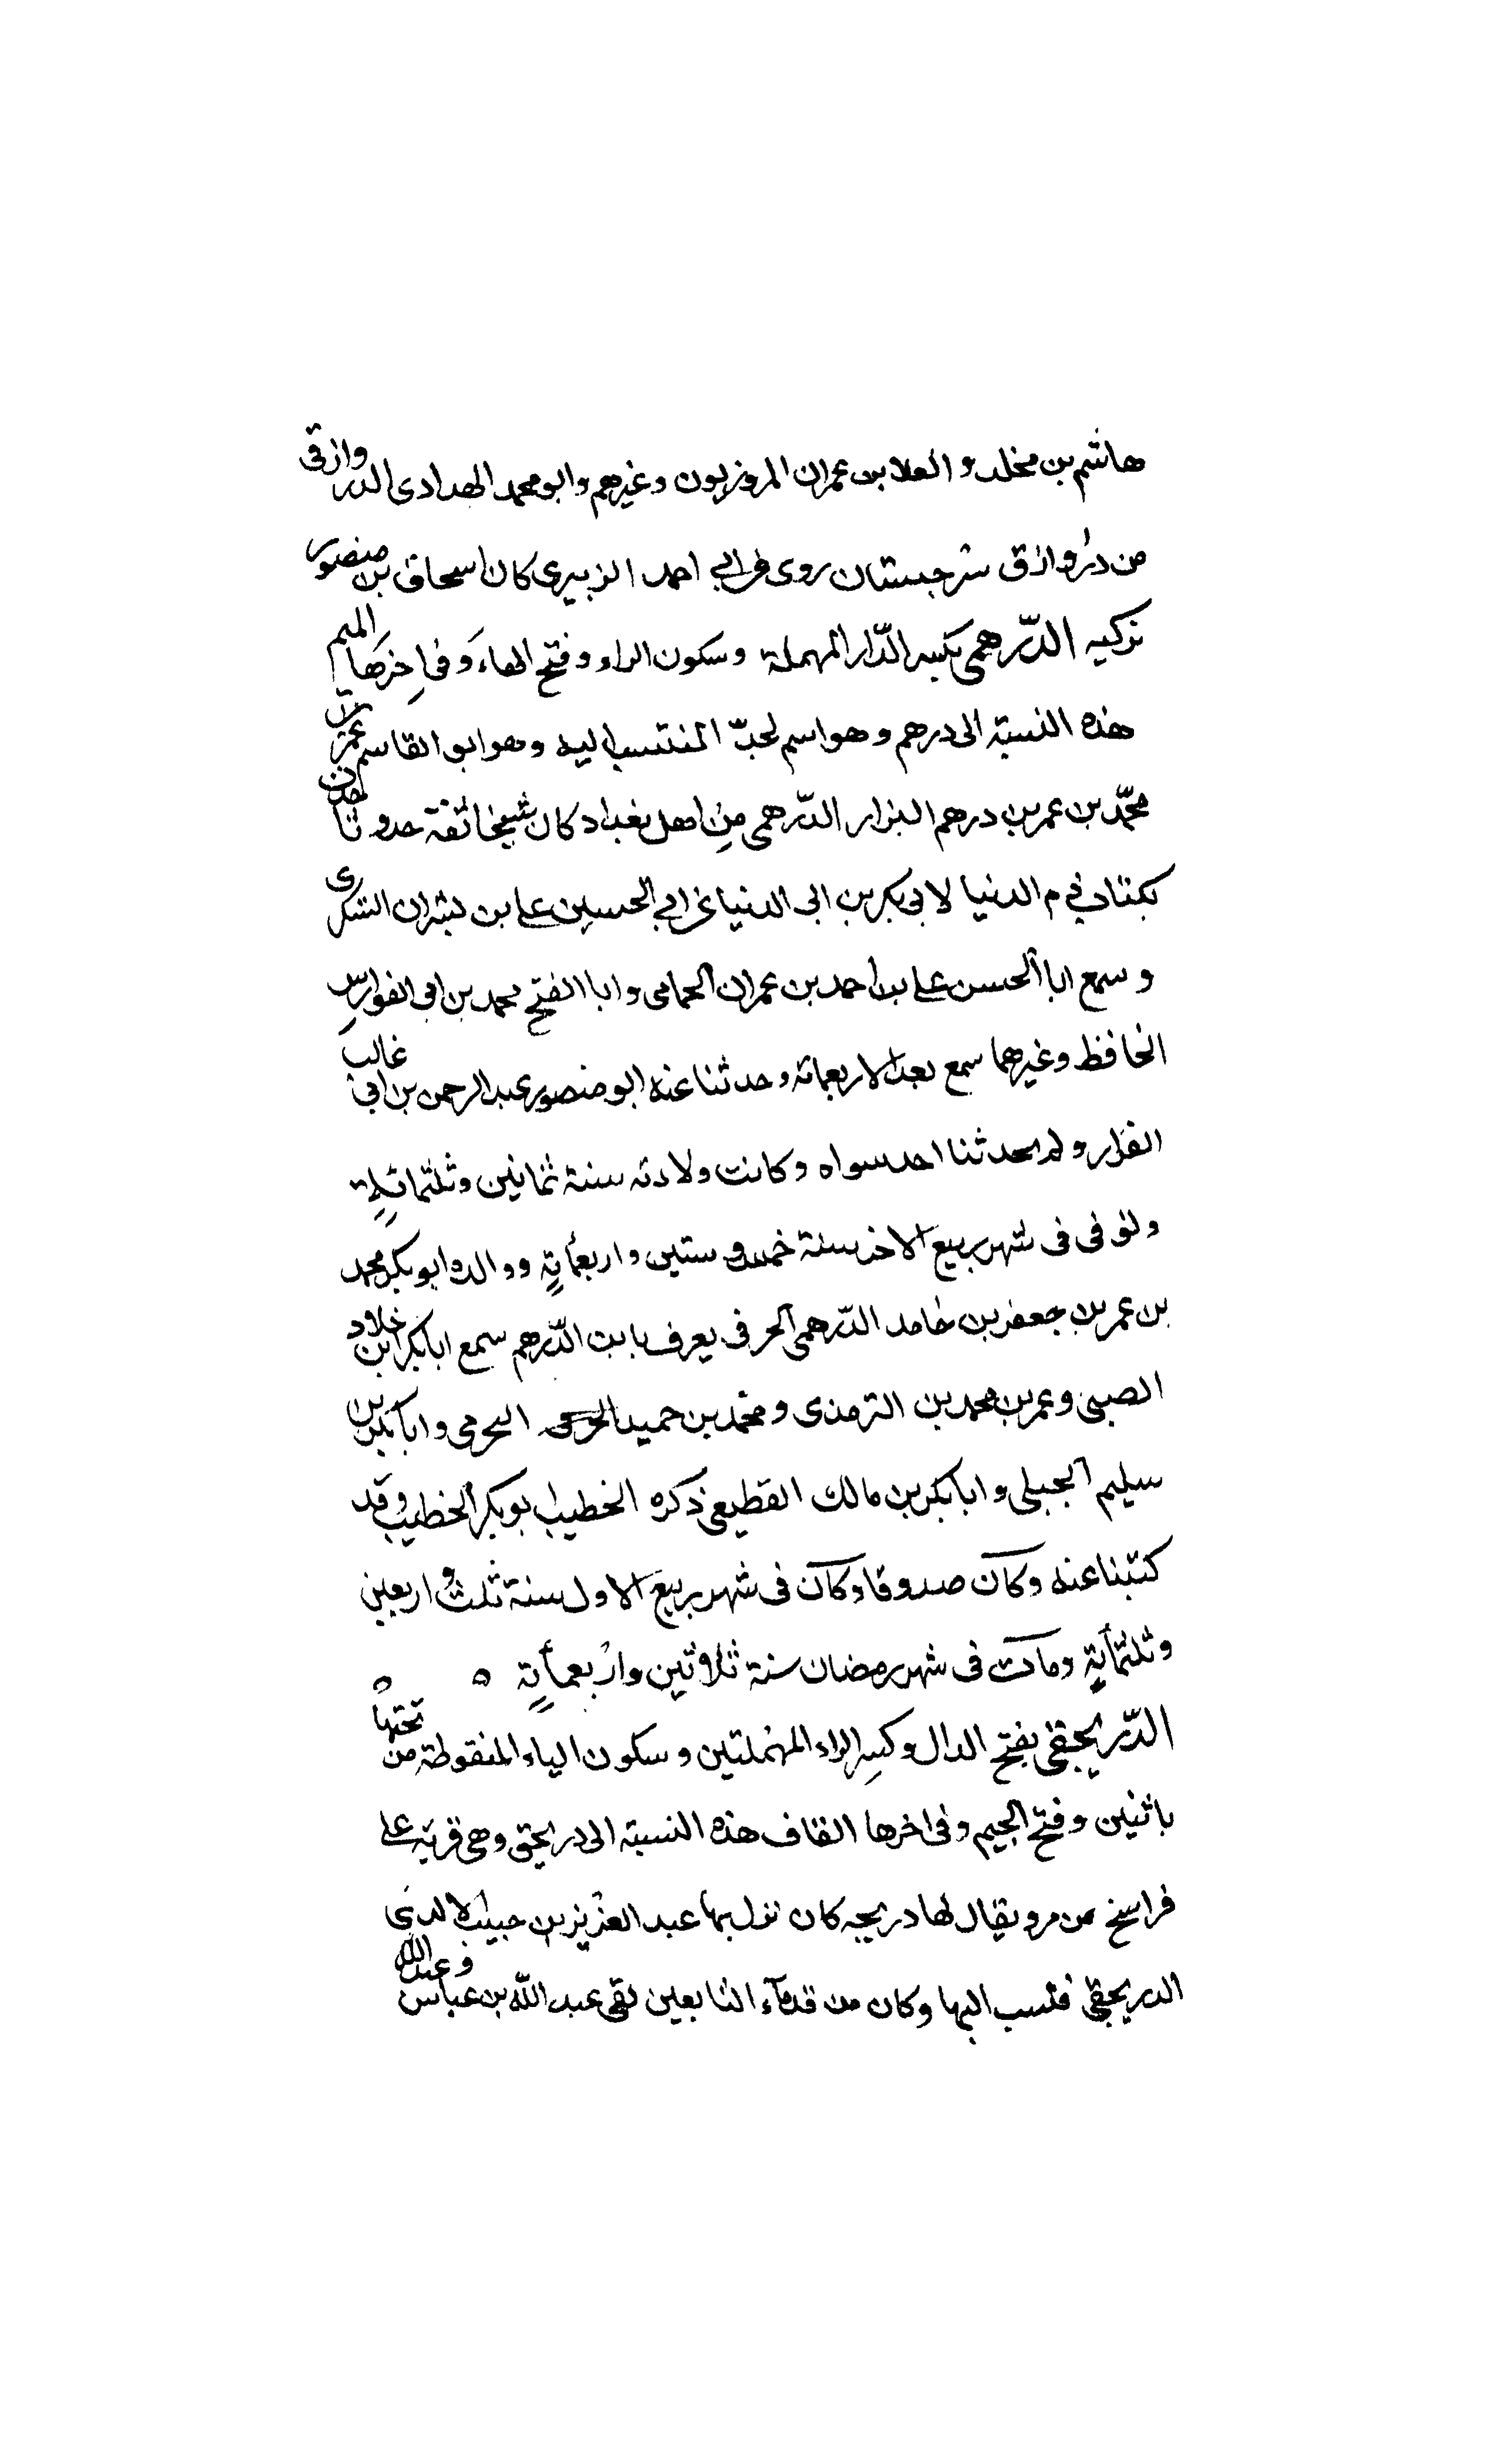 هاشم بن مخلد و العلا بن عمران المروزيون وغيرهم وابو محمد الهدادى الدروازقى
من دروازق سرخستان روى عن ابى احمد الزبيرى كان اسحاق بن منصور
تزكيه الدّرهمى بكسر الدّال المهملة وسكون الراء وفتح الهاء وفى اخرها الميم
هذه النسبة الى درهم وهو اسم لجدّ المنتسب اليه وهو ابو القاسم عمر بن
محمّد بن عمر بن درهم البزار الدّرهمى من اهل بغداد كان شيخا ثقة صدوقا حدث
بكتاب ذم الدنيا لابى بكر بن ابى الدنيا عن ابى الحسين على بن بشران السكرى
و سمع ابا الحسن على بن احمد بن عمران الحمامى وابا الفتح محمد بن ابى الفوارس
الحافظ وغيرهما سمع بعد الاربعمائة وحدثنا عنه ابو منصور عبد الرحمن بن ابى غالب
القزار ولم يحدثنا احد سواه وكانت ولادته سنة ثمانين وثلثمائة
وتوفى فى شهر ربيع الاخر سنة خمس وستين واربعمأيةٍ ووالده ابو بكر محمد
بن عمر بن جعفر بن حامد الدّرهمى الحرفى يعرف بابن الدّرهم سمع ابا بكر ابن خلاد
الصبى وعمر بن محمد بن الترمذى ومحمد بن حميد المخرمى وابا بكر بن
سليم الجبلى وابا بكر بن مالك القطيعى ذكره الخطيب ابو بكر الخطيب وقد
كتبنا عنه وكان صدوقا وكان فى شهر ربيع الاول سنة ثلث واربعين
وثلثمأيةٍ ومات فى شهر رمضان سنة ثلاثين واربعمأيةٍ ه ه
الدّريجقى بفتح الدال وكسر الراء المهملتين وسكون الياء المنقوطة من تحتها
باثنين وفتح الجيم وفى اخرها القاف هذه النسبة الى دريجق وهى قرية على
فراسخ من مرو يقال لها دريجه كان نزل بها عبد العزيز بن حبيب الاسدى
الدريجقى فنسب اليها وكان من قدمآء التابعين لقى عبد الله بن عباس و عبد الله